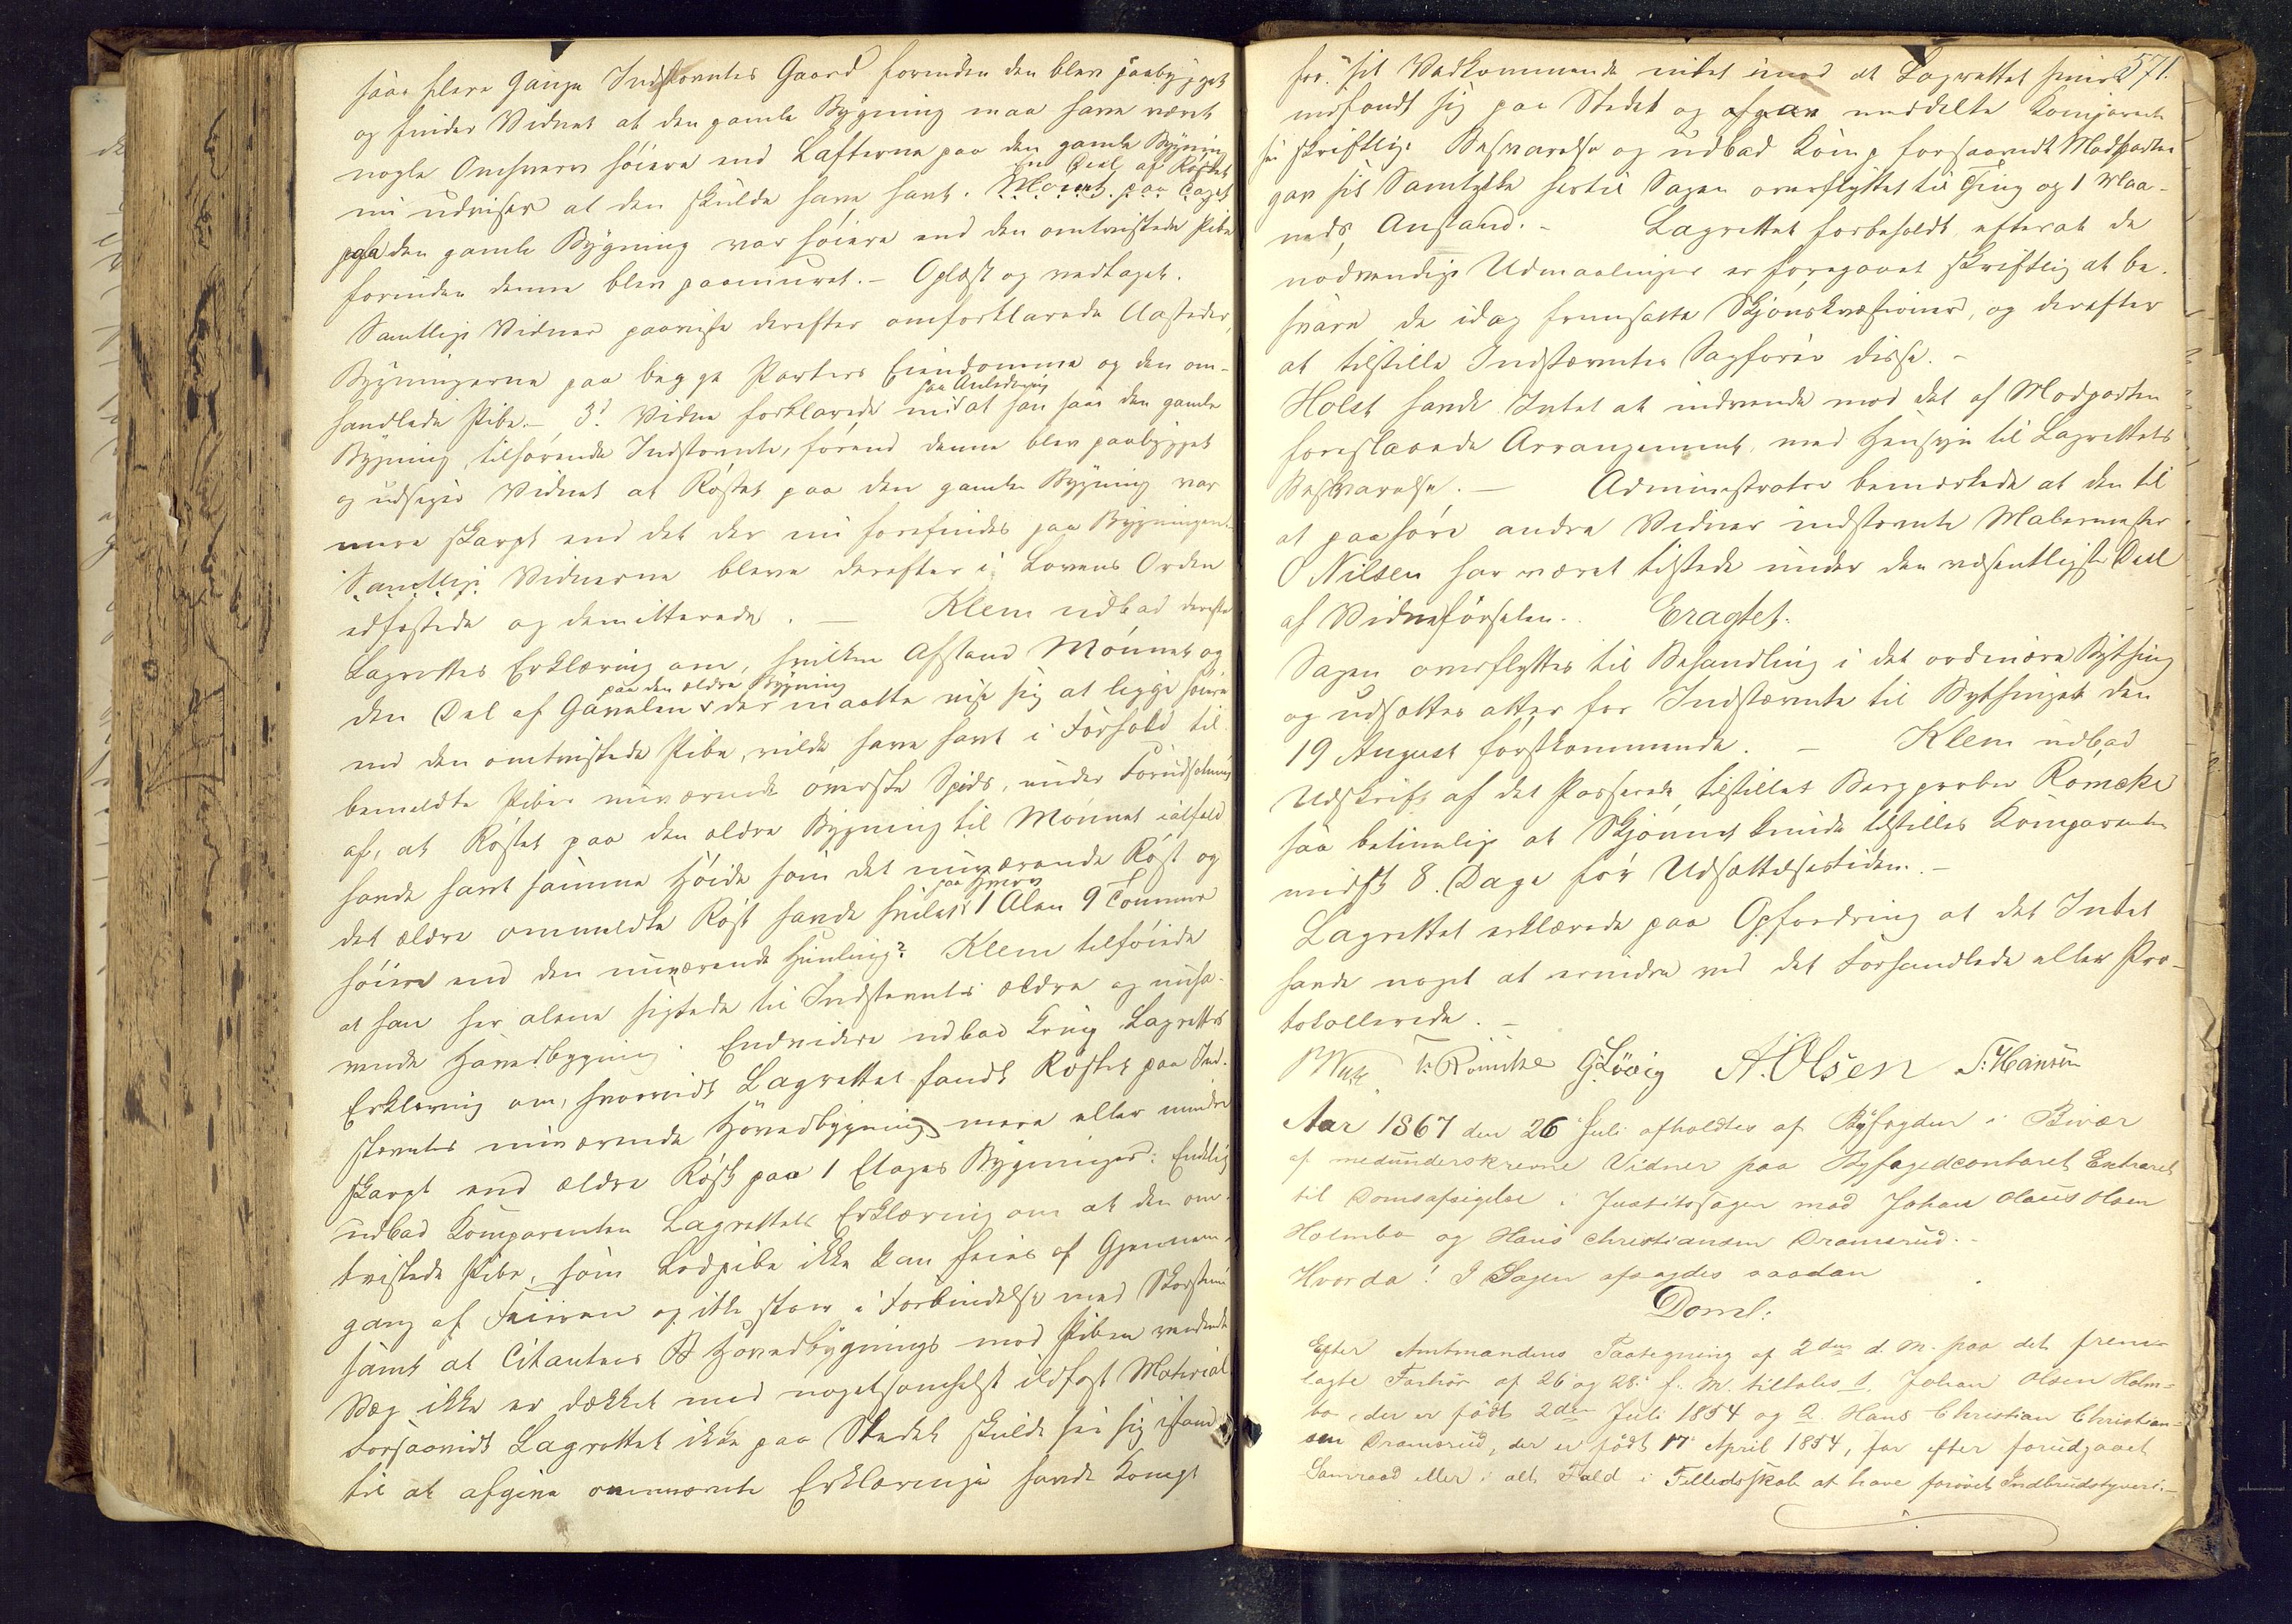 saa flere Gange Indstevntes Gaard forinden den blev paabygget
og finder Vidnet at den gamle Bygning maa have været
nogle Omhverv høiere end Lafterne paa den gamle Bygning
nu udviser at den skulde have havt. Mønet paa Taget En Deel af Røstet
paa den gamle Bygning var høiere end den omtvistede Pibe
forinden denne blev paamuret. - Oplæst og vedtaget.
Samtlige Vidner paaviste derefter omforklarede Aasteder,
Bygningerne paa begge Parters Eiendomme og den om-
handlede Pibe. - 3d Vidne forklarede paa Anledning at han saa den gamle
Bygning, tilhørende Indstevnte, førend denne blev paabygget
og udsiger Vidnet at Røstet paa den gamle Bygning var
mere skarpt end det der nu forefindes paa Bygningen.
Samtlige Vidnerne bleve derefter i Lovens Orden
edfæstede og demitterede. - Klem udbad derefter
Lagrettes Erklæring om, hvilken Afstand Mønnet og
den Del af Gavelen paa den ældre Bygning der maatte vise sig at ligge høiere
end den omtvistede Pibe, vilde have havt i Forhold til
bemeldte Pibes nuværende øverste Spids, under Forudsætning
af, at Røstet paa den ældre Bygning til Mønnet ialfald
havde havt samme Høide som det nuværende Røst og
det ældre ommeldte Røst havde hvilet paa Hverv 1 Alen 9 Tommer
høiere end den nuværende Himling? Klem tilføiede
at han her alene sigtede til Indstevntes ældre og nuvæ-
rende Hovedbygning. Endvidere udbad Komp Lagrettes
Erklæring om, hvorvidt Lagrettet fandt Røstet paa Ind-
stevntes nuværende Hovedbygning mere eller mindre
skarpt end ældre Røst paa 1 Etages Bygninger: Endelig
udbad Komparenten Lagrettets Erklæring om at den om-
tvistede Pibe, som Lodpibe ikke kan feies af Gjennem-
gang af Feieren og ikke staar i Forbindelse med Skorsteen
samt at Citantens Hovedbygnings mod Piben vendende
Væg ikke er dækket med nogetsomhelst ildfast Material
Forsaavidt Lagrettet ikke paa Stedet skulde see sig istand
til at afgive ovennævnte Erklæringe havde Kompt
571.
for sit Vedkommende intet imod at Lagrettet senere
indfandt sig paa Stedet og meddelte Komparent
sin skriftlige Besvarelse og udbad Komp forsaavidt Modparten
gav sit Samtykke hertil Sagen overflyttet til Ting og 1 Maa-
neds Anstand. - Lagrettet forbeholdt efterat de
nødvendige Udmaalinger er foregaaet skriftlig at be-
svare de idag fremsatte Skjønskvæstioner, og derefter
at tilstille Indstævntes Sagfører disse. -
Holst havde Intet at indvende mod det af Modparten
foreslaaede Arrangement, med Hensyn til Lagrettets
Besvarelse. - Administrator bemærkede at den til
at paahøre andre Vidner indstevnte Malermester
O Nilsen har været tilstede under den væsentligste Deel
af Vidneførselen. Eragtet.
Sagen overflyttes til Behandling i det ordinære Bything
og udsættes atter for Indstævnte til Bythinget den
19 August førstkommende. - Klem udbad
Udskrift af det Passerede tilstillet Bergprober Rømcke
saa betimelig at Skjønnet kunde tilstilles Komparenten
mindst 8. Dage før Udsættelsestiden. -
Lagrettet erklærede paa Opfordring at det Intet
havde noget at erindre ved det Forhandlede eller Pro-
tokollerede. -
T: Rømcke G. Løvig A. Olsen T. Hansen
Aar 1867 den 26 Juli afholdtes af Byfogden i Overvær
af nedunderskrevne Vidner paa Byfogedcontoret Extraret
til Domsafsigelse i Justitssagen mod Johan Olaus Olsen
Holmbo og Hans Christiansen Dramsrud. -
Hvorda: I Sagen afsagdes saadan
Doml:
Efter Amtmandens Paategning af 2den d. M. paa det frem-
lagte Forhør af 26 og 28: f. M. tiltales 1, Johan Olsen Holm-
bo, der er født 2den Juli 1854 og 2 Hans Christian Christian-
sen Dramsrud, der er født 17 April 1854, for efter forudgaaet
Samraad eller i alt Fald i Fælledsskab at have forøvet Indbrudstyveri. -